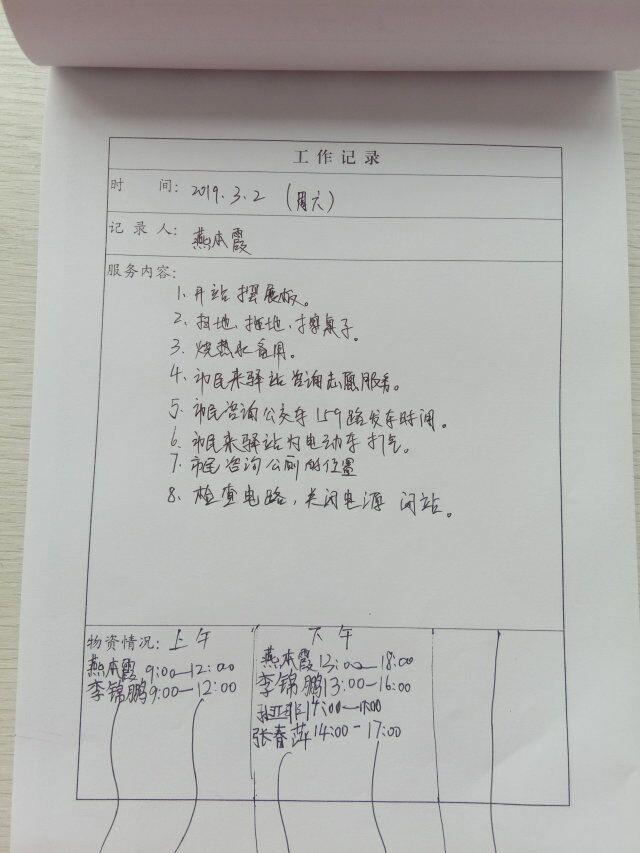 工作记录
时 间: 2019.3.2 (周六)
记录人: 燕本霞
服务内容:
1. 开站摆展板。
2. 扫地、拖地、擦桌子。
3. 烧热水备用。
4. 市民来驿站咨询志愿服务。
5. 市民咨询公交车159路发车时间。
6. 市民来驿站为电动车打气。
7. 市民咨询公厕的位置
8. 检查电路,关闭电源 闭站。
物资情况: 上午
燕本霞 9:00—12:00
李锦鹏 9:00—12:00
下午
燕本霞 13:00—18:00
李锦鹏 13:00-16:00
14:00—
张春萍 14:00-17:00